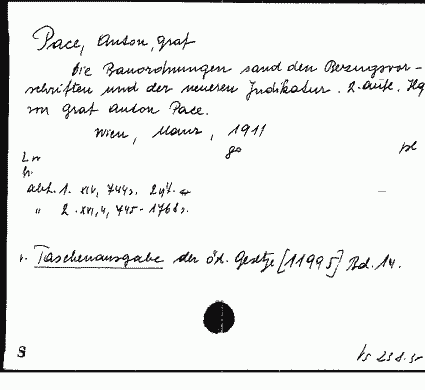 Pace, Anton, graf
Die Bauordnungen samt den Bezugsvor-
schriften und der neueren Judikatur. 2. Aufl. Hg
von Graf Anton Pace.
Wien, Manz, 1911
8°
Abt. 1. XIV, 744 s.
" 2. XVI, 4, 745-1766 s.
Taschenausgabe der öst. Gesetze [11995] Bd. 14.
S